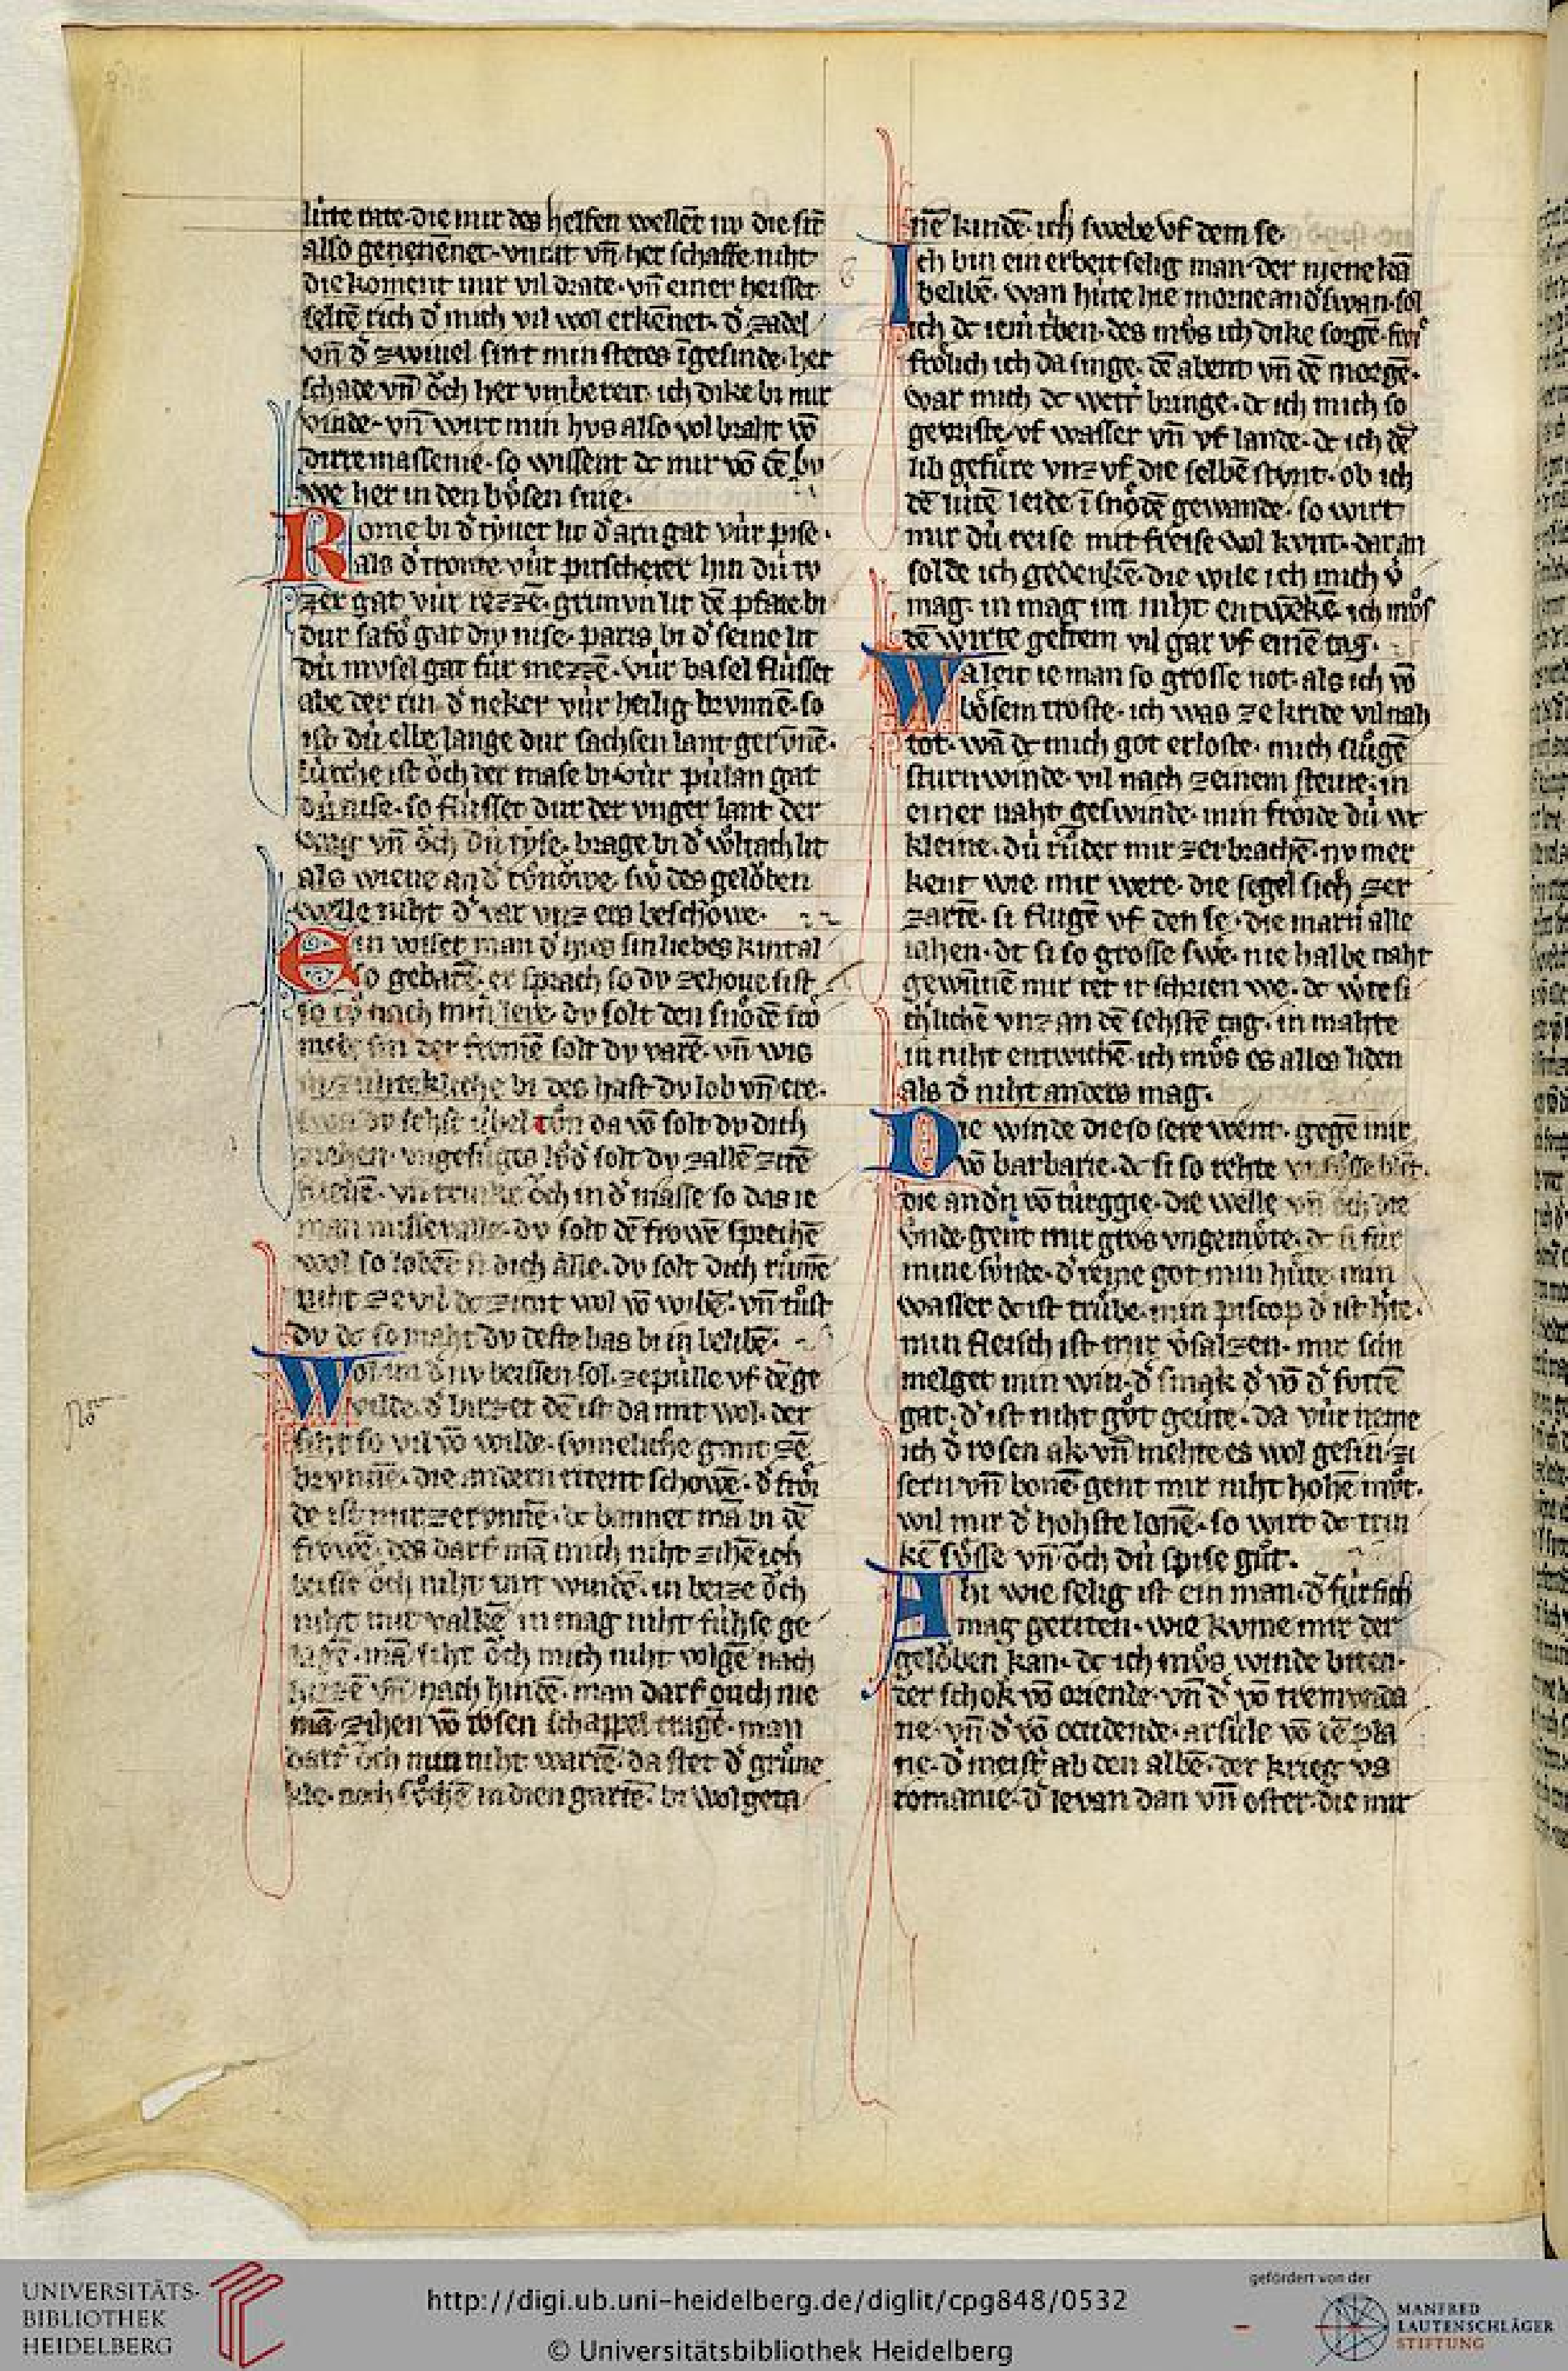 lúte rate· die mir des helfen wellēt nv die sīt
also genennet· vnrat vn̄ her schaffe niht
die koment mir vil drate· vn̄ einer heisset
seltē rich d̾ mich vil wol erkēnet· d̾ zadel
vn̄ d̾ zwiuel sint min stetes īgesinde· her
schade vn̄ ǒch her vmbereit· ich dike bi mir
vinde· vn̄ wirt min hvs also vol braht vō
dirre massenie· so wissent dc mir vō dē bv
we her in den bůsen snie·
Rome bi d̾ tyuer lit d̾ arn gat vúr pise·
als d̾ tronte vúr pitscheier hin dú tv
zer gat vúr rezzē· grimvn lit dē pfate bi
dur safǒ gat div nise· paris bi d̾ seine lit
dú mvsel gat fúr mezzē· vúr basel flússet
abe der rin· d̾ neker vúr heilig brvnnē· so
ist dú elbe lange dur sachsen lant gervnē·
lútche ist ǒch der mase bi· vúr pulan gat
dú nise· so flússet dur der vnger lant der
wag vn̄ ǒch dú tyse· brage bi d̾ wltach lit
als wiene an d̾ tůnǒwe· sw̾ des gelǒben
welle niht d̾ var vnz ers beschǒwe·
Ein wiser man d̾ hies sin liebes kint al
so gebarē· er sprach so dv ze houe sist
so tů nach min̾ lere· dv solt den snǒdē frō
mede sin der fromē solt dv varē· vn̄ wis
in zúhtekliche bi des hast dv lob vn̄ ere·
swa dv sehst úbel tůn da vō solt dv dich
ziehen· vngefůges solt dv zallē zitē
vliehē· vn̄ trinke ǒch in d̾ masse so das ie
man misseualle· dv solt dē frowē sprechē
wol so lobēt si dich alle· dv solt dich růmē
niht ze vil dc zimt wol vō wibē· vn̄ tůst
dv dc so maht dv deste bas bi in belibē·
Wol im d̾ nv beissen sol· ze púlle vf dē ge
vilde· d̾ birzet dē ist da mit wol· der
siht so vil vō wilde· svmeliche gant zē
brvnnē· die andern ritent schǒwē· d̾ frǒi
de ist mir zervnnē· dc bannet mā bi dē
frowē· des darf mā mich niht zihē ich
beisse ǒch niht mit windē· in beize ǒch
niht mit valkē in mag niht fúhse ge
iagē· mā siht ǒch mich niht volgē nach
hirzē vn̄ nach hindē· man darf ouch nie
mā zihen vō rosen schappel tragē· man
darf ǒch min niht wartē· da stet d̾ grůne
kle· noch sǔchē in dien gartē· bi wolgeta
nē kindē· ich swebe vf dem se·
Ich bin ein erbeit selig man· der niene kā
belibē· wan húte hie morne and̾swan· sol
ich dc iem̾ triben· des můs ich dike sorgē· swi̾
frǒlich ich da singe· dē abent vn̄ dē morgē·
war mich dc wett̾ bringe· dc ich mich so
gevriste· vf wasser vn̄ vf lande· dc ich dē
lib gefůre vnz vf die selbē stvnt· ob ich
dē lútē leide ī snǒdē gewande· so wirt
mir dú reise mit freise wol kvnt· dar an
solde ich gedenkē· die wile ich mich v̾
mag· in mag im niht entwekē ich můs
dē wirte geltem vil gar vf einē tag·
Wa leit ie man so grosse not· als ich vō
bǒsem troste· ich was ze kride vil nah
tot· wā dc mich got erloste· mich slůgē
sturnwinde· vil nach zeinem steine· in
einer naht geswinde· min frǒide dú wc
kleine· dú růder mir zerbrachē· nv mer
kent wie mir were· die segel sich zer
zartē· si flugē vf den se· die marn̾ alle
iahen· dc si so grosse swe· nie halbe naht
gewúnnē mir tet ir schrien we· dc wtē si
cherlichē vnz an dē sehstē tag· in mahte
in niht entwichē· ich můs es alles liden
als d̾ niht anders mag·
Die winde die so sere went· gegē mir
vō barbarie· dc si so rehte vnsůsse blēt·
die and̾n vō túrggie· die welle vn̄ ǒch die
vnde· gent mir gros vngemůte· dc si fúr
mine súnde· d̾ reine got min hůte· min
wasser dc ist trůbe· min piscop d̾ ist h̾te·
min fleisch ist mir v̾salzen· mir schi
melget min win· d̾ smak d̾ vō d̾ sottē
gat· d̾ ist niht gůt geu̾te· da vúr neme
ich d̾ rosen ak· vn̄ mehte es wol gesin· zi
sern vn̄ bonē gent mir niht hohē můt·
wil mir d̾ hohste lonē· so wirt dc trin
kē sǒsse vn̄ ǒch dú spise gůt·
Ahi wie selig ist ein man· d̾ fúr sich
mag geriten· wie kvme mir der
gelǒben kan· dc ich můs winde biten·
der schok vō oriende· vn̄ d̾ vō tremvnda
ne· vn̄ d̾ vō occidende· arsule vō dē pla
ne· d̾ meist̾ ab den albē· der krieg vs
romanie· d̾ levan dan vn̄ oster· die mir
UNIVERSITÄTS-
BIBLIOTHEK
HEIDELBERG
http://digi.ub.uni-heidelberg.de/diglit/cpg848/0532
© Universitätsbibliothek Heidelberg
gefördert von der
MANFRED
LAUTENSCHLÄGER
STIFTUNG